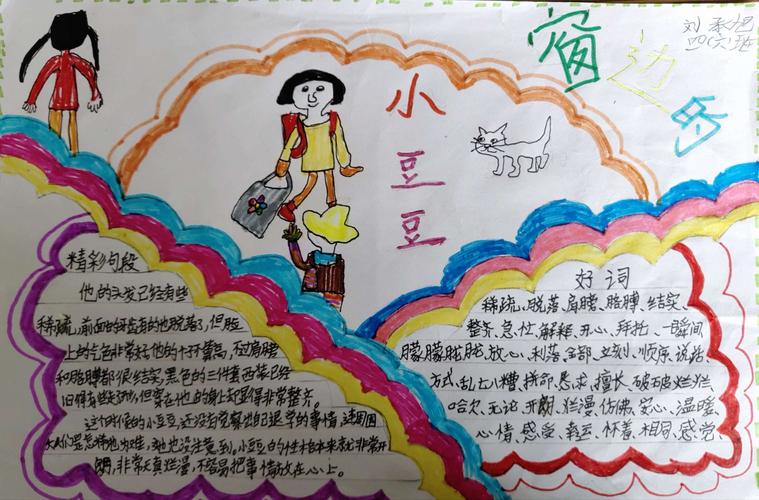 窗边的
小豆豆
刘
四(六)班
精彩句段
他的头发已经有些
稀疏,前面的牙齿有的也脱落了,但脸
上的气色非常好,他的个子不算高,不过肩膀
和胳膊都很结实,黑色的三件套西装已经
旧得有些走形,但穿在他的身上却显得非常整齐。
这个时候的小豆豆,还没有觉察出自己退学的事情,连周围
大人们是怎样地为难,她也没注意到。小豆豆的性格本来就非常开
朗,非常天真烂漫,不容易把事情放在心上。
好词
稀疏、脱落、肩膀、胳膊、结实、
整齐、急忙、解释、开心、拜托、一瞬间
朦朦胧胧、放心、利落、全部、立刻、顺序、说话、
方式、乱七八糟、拼命、恳求、擅长、破破烂烂、
哈欠、无论、开朗、烂漫、仿佛、安心、温暖、
心情、感受、幸运、怀着、相同、感觉、